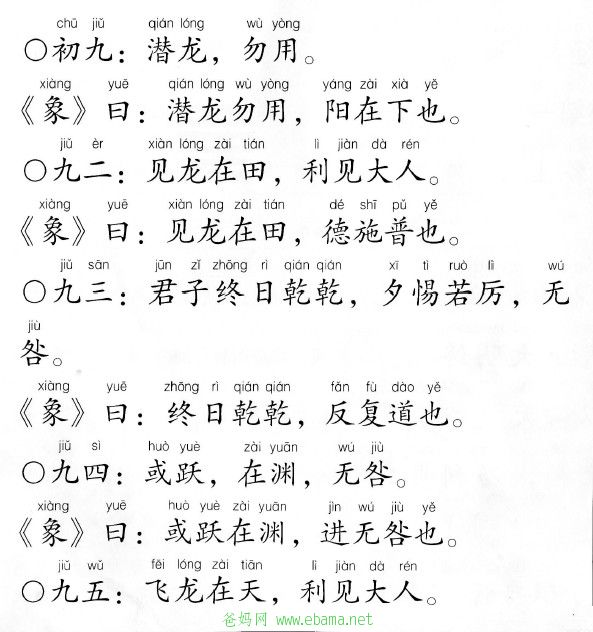 chū jiǔ qián lóng wù yòng
○初九：潜龙，勿用。
xiàng yuē qián lóng wù yòng yáng zài xià yě
《象》曰：潜龙勿用，阳在下也。
jiǔ èr xiàn lóng zài tián lì jiàn dà rén
○九二：见龙在田，利见大人。
xiàng yuē xiàn lóng zài tián dé shī pǔ yě
《象》曰：见龙在田，德施普也。
jiǔ sān jūn zǐ zhōng rì qián qián xī tì ruò lì wú
○九三：君子终日乾乾，夕惕若厉，无
jiù
咎。
xiàng yuē zhōng rì qián qián fǎn fù dào yě
《象》曰：终日乾乾，反复道也。
jiǔ sì huò yuè zài yuān wú jiù
○九四：或跃，在渊，无咎。
xiàng yuē huò yuè zài yuān jìn wú jiù yě
《象》曰：或跃在渊，进无咎也。
jiǔ wǔ fēi lóng zài tiān lì jiàn dà rén
○九五：飞龙在天，利见大人。
爸妈网 www.ebama.net